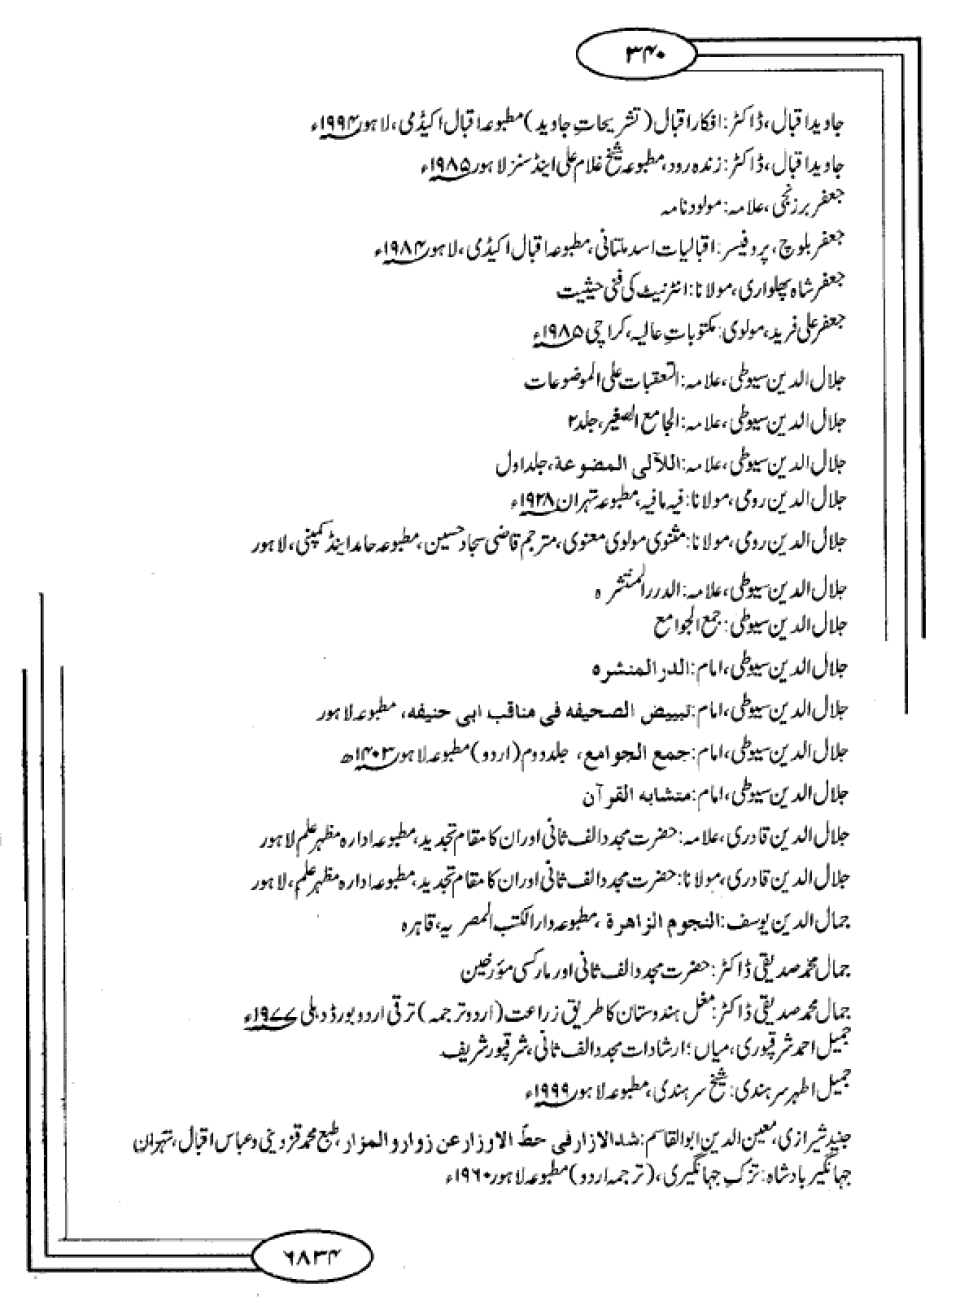 ۳۴۰
جاوید اقبال، ڈاکٹر: افکار اقبال (تشریحاتِ جاوید) مطبوعہ اقبال اکیڈمی، لاہور ۱۹۹۴ء
جاوید اقبال، ڈاکٹر: زندہ رود، مطبوعہ شیخ غلام علی اینڈ سنز لاہور ۱۹۸۵ء
جعفر برزنجی، علامہ: مولود نامہ
جعفر بلوچ، پروفیسر: اقبالیات اسد ملتانی، مطبوعہ اقبال اکیڈمی، لاہور ۱۹۸۴ء
جعفر شاہ پھلواری، مولانا: انٹرنیٹ کی فنی حیثیت
جعفر علی فرید، مولوی: مکتوباتِ عالیہ، کراچی ۱۹۸۵ء
جلال الدین سیوطی، علامہ: التعقبات علی الموضوعات
جلال الدین سیوطی، علامہ: الجامع الصغیر، جلد ۲
جلال الدین سیوطی، علامہ: اللآلی المضوعة، جلد اول
جلال الدین رومی، مولانا: فیہ مافیہ، مطبوعہ تہران ۱۹۲۸ء
جلال الدین رومی، مولانا: مثنوی مولوی معنوی، مترجم قاضی سجاد حسین، مطبوعہ حامد اینڈ کمپنی، لاہور
جلال الدین سیوطی، علامہ: الدرر المنتشرہ
جلال الدین سیوطی: جمع الجوامع
جلال الدین سیوطی، امام: الدر المنشره
جلال الدین سیوطی، امام: تبییض الصحیفه فی مناقب ابی حنیفه، مطبوعہ لاہور
جلال الدین سیوطی، امام: جمع الجوامع، جلد دوم (اردو) مطبوعہ لاہور ۱۴۰۳ھ
جلال الدین سیوطی، امام: متشابه القرآن
جلال الدین قادری، علامہ: حضرت مجدد الف ثانی اور ان کا مقام تجدید، مطبوعہ ادارہ مظہر علم لاہور
جلال الدین قادری، مولانا: حضرت مجدد الف ثانی اور ان کا مقام تجدید، مطبوعہ ادارہ مظہر علم، لاہور
جمال الدین یوسف: النجوم الزاهرة، مطبوعہ دارالکتب المصریہ، قاہرہ
جمال محمد صدیقی ڈاکٹر: حضرت مجدد الف ثانی اور مارکسی مؤرخین
جمال محمد صدیقی ڈاکٹر: مغل ہندوستان کا طریق زراعت (اردو ترجمہ) ترقی اردو بورڈ دہلی ۱۹۷۷ء
جمیل احمد شرقپوری، میاں؛ ارشادات مجدد الف ثانی، شرقپور شریف
جمیل اطہر سرہندی: شیخ سرہندی، مطبوعہ لاہور ۱۹۹۹ء
جنید شیرازی، معین الدین ابوالقاسم: شد الازار فی حطّ الاوزار عن زوار و المزار، طبع محمد قزوینی و عباس اقبال، تہران
جہانگیر بادشاہ: تزک جہانگیری، (ترجمہ اردو) مطبوعہ لاہور ۱۹۶۰ء
۶۸۳۴